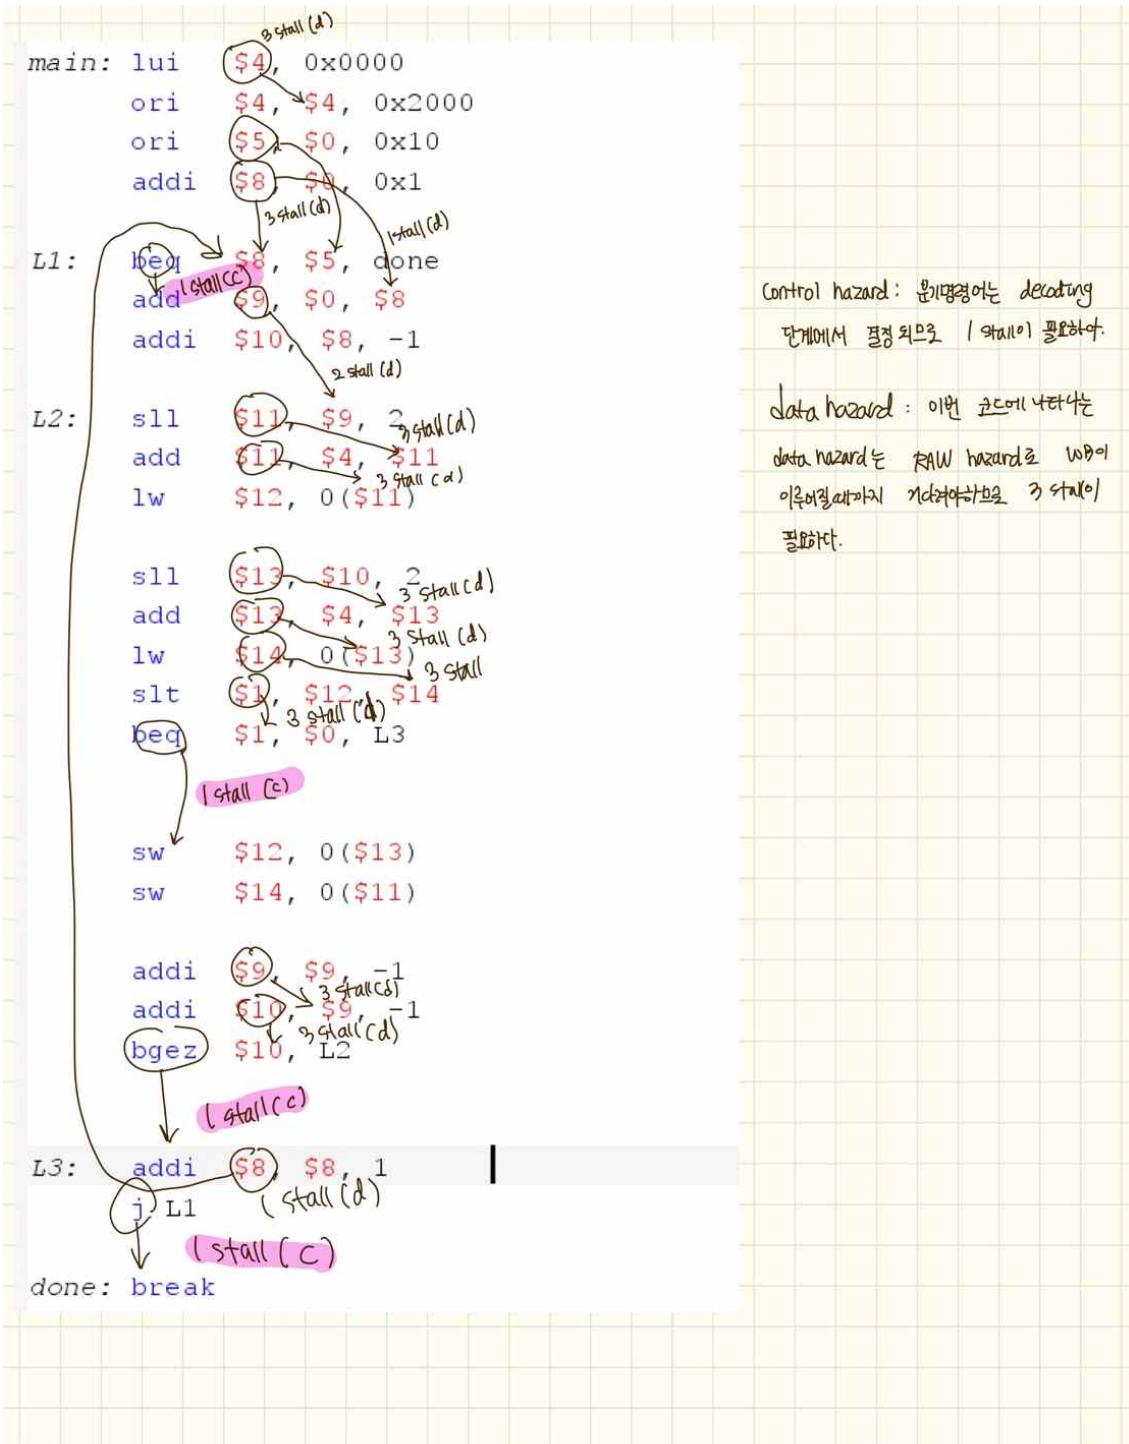 3 stall (d)
main: lui $4, 0x0000
ori $4, $4, 0x2000
ori $5, $0, 0x10
addi $8, $0, 0x1
3 stall (d)
1 stall (d)
L1: beq $8, $5, done
1 stall (c)
add $9, $0, $8
addi $10, $8, -1
2 stall (d)
L2: sll $11, $9, 2
3 stall (d)
add $11, $4, $11
3 stall (d)
lw $12, 0($11)
sll $13, $10, 2
3 stall (d)
add $13, $4, $13
3 stall (d)
lw $14, 0($13)
3 stall
slt $1, $12, $14
3 stall (d)
beq $1, $0, L3
1 stall (c)
sw $12, 0($13)
sw $14, 0($11)
addi $9, $9, -1
3 stall (d)
addi $10, $9, -1
3 stall (d)
bgez $10, L2
1 stall (c)
L3: addi $8, $8, 1
1 stall (d)
j L1
1 stall (c)
done: break
control hazard : 분기명령어는 decoding
단계에서 결정 되므로 1 stall이 필요하다.
data hazard : 이번 코드에 나타나는
data hazard는 RAW hazard로 WB이
이루어질때까지 기다려야하므로 3 stall이
필요하다.